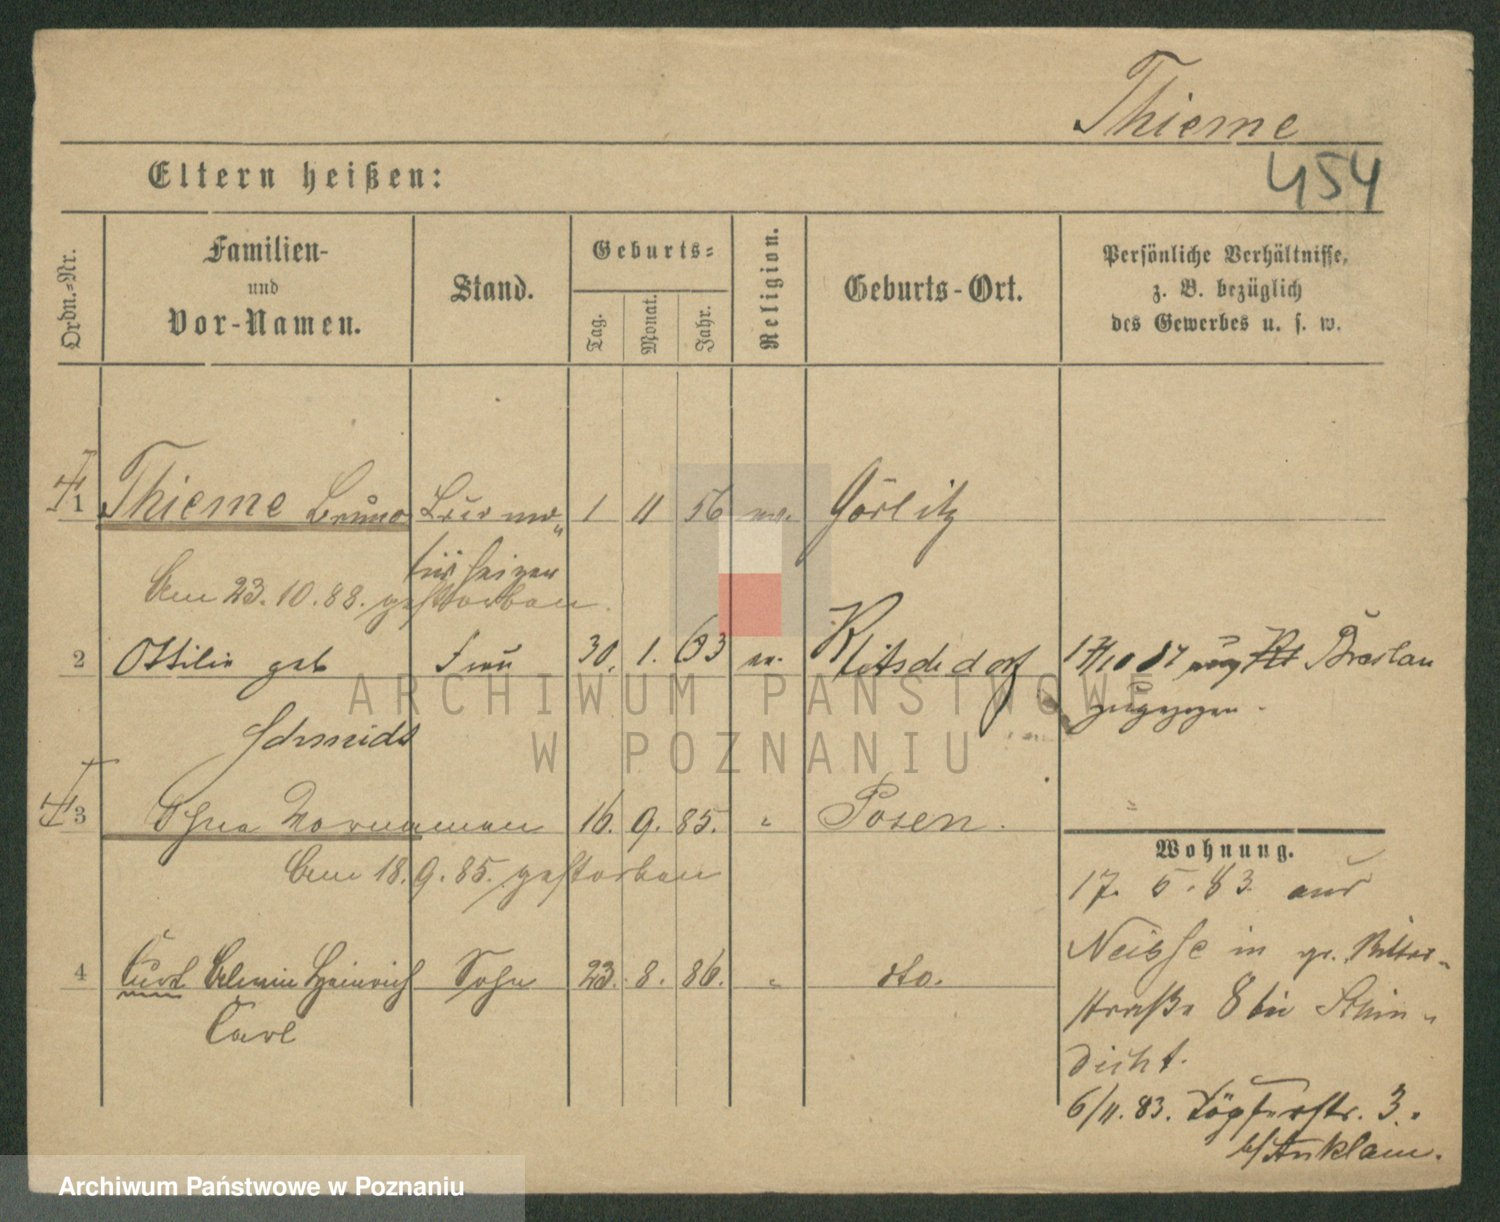 Thieme
454
Eltern heißen:
Ordn.-Nr.
Familien-
und
Vor-Namen.
Stand.
Geburts-
Tag.
Monat.
Jahr.
Religion.
Geburts-Ort.
Persönliche Verhältnisse,
z. B. bezüglich
des Gewerbes u. s. w.
1 Thieme Bruno 1 11 56 ev. Görlitz
Am 23.10.88. gestorben.
2 Ottilie geb Frau 30. 1. 63 ev. Breslau
zugezogen.
Schmidt
3 Ohne Vornamen 16. 9. 85. " Posen.
Am 18.9.85. gestorben
4 Curt Heinrich Sohn 23. 8. 86. " dto.
Carl
Wohnung.
17. 5. 83. aus
Neisse in gr. Ritter-
straße 8 bei Stein-
dicht.
6/11. 83. Töpferstr. 3.
b/Anklam.
ARCHIWUM PAŃSTWOWE
W POZNANIU
Archiwum Państwowe w Poznaniu